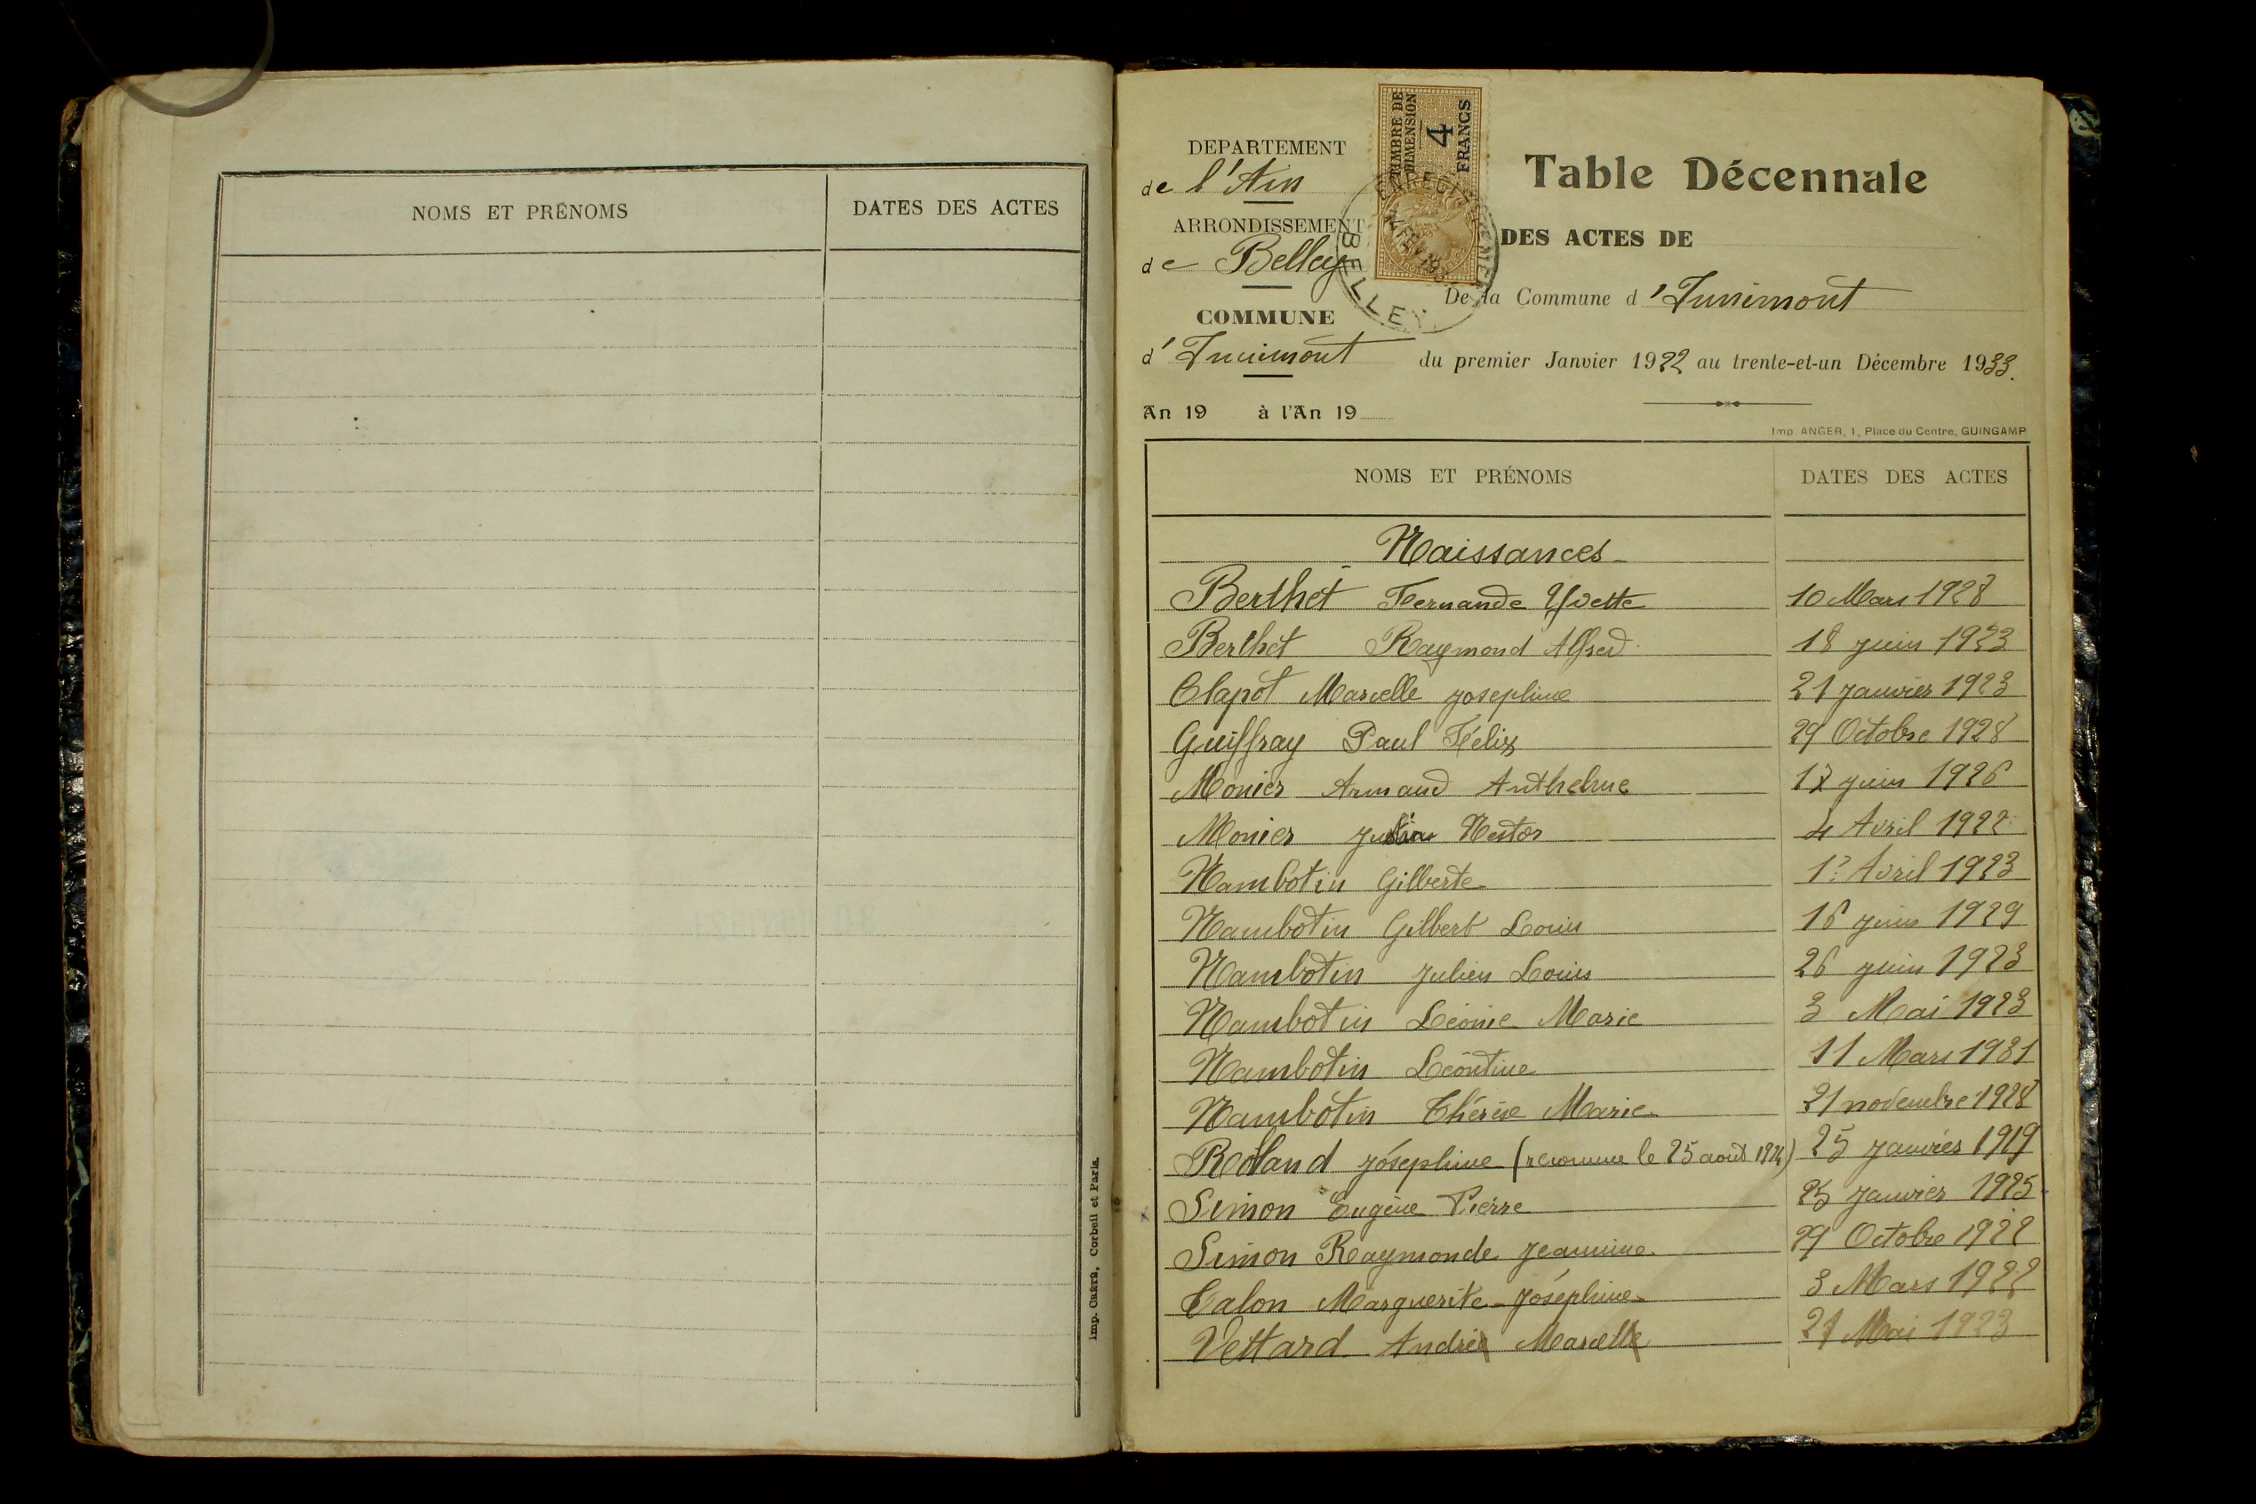 NOMS ET PRÉNOMS
DATES DES ACTES
Imp. CRÉTÉ, Corbeil et Paris.
DEPARTEMENT
de l'Ain
ARRONDISSEMENT
de Belley
COMMUNE
d'Innimont
An 19 à l'An 19
TIMBRE DE
DIMENSION
4
FRANCS
ENREGISTREMENT
BELLEY
Table Décennale
DES ACTES DE
De la Commune d'Innimont
du premier Janvier 1922 au trente-et-un Décembre 1933.
Imp. ANGER, 1, Place du Centre, GUINGAMP
NOMS ET PRÉNOMS
DATES DES ACTES
Naissances
Berthet Fernande Yvette 10 Mars 1928
Berthet Raymond Alfred 18 juin 1923
Clapot Marcelle Josephine 21 Janvier 1923
Guiffray Paul Félix 29 Octobre 1928
Monier Armand Anthelme juin 1926
Monier Nestor 4 Avril 1922
Nambotin Gilberte Avril 1923
Nambotin Gilbert Louis 16 juin 1929
Nambotin Julien Louis 26 juin 1923
Nambotin Léonie Marie 3 Mai 1923
Nambotin Léontine 11 Mars 1931
Nambotin Thérèse Marie 21 novembre 1928
Rolland Joséphine (reconnue le 25 août 1924) 25 Janvier 1919
Simon Eugène Pierre 25 Janvier 1925
Simon Raymonde Jeannine 29 Octobre 1922
Talon Marguerite Joséphine 3 Mars 1922
Vettard André Marcel 21 Mai 1923